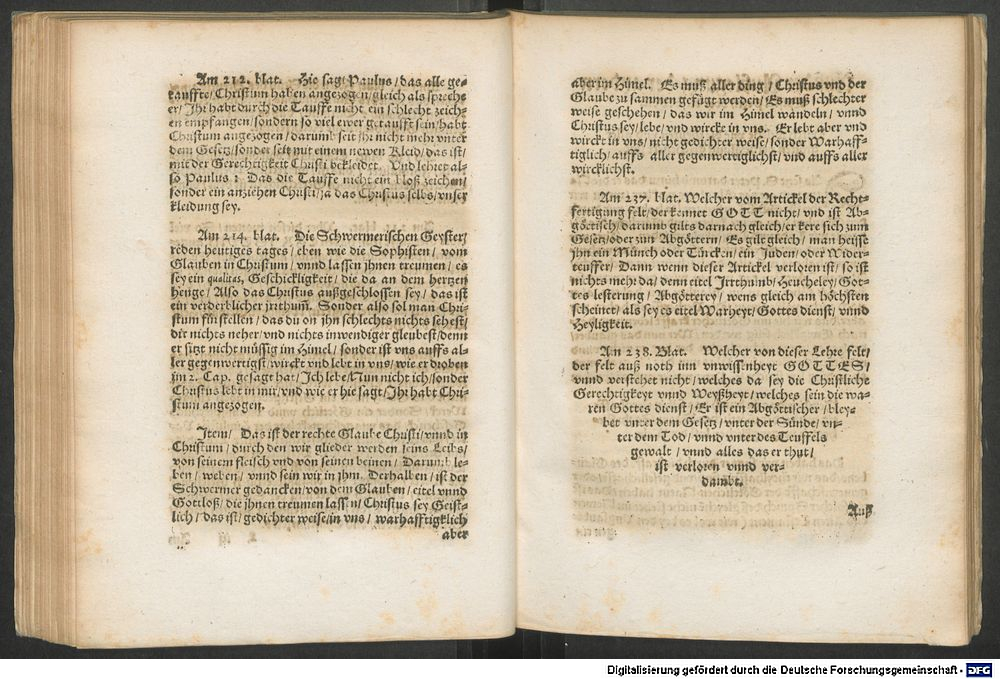 Am 212. blat. Hie sagt Paulus / das alle ge-
tauffte / Christum haben angezogen / gleich als spreche
er / Ihr habt durch die Tauffe nicht ein schlecht zeich-
en empfangen / sondern so viel ewer getaufft sein / habt
Christum angezogen / darumb seit ihr nicht mehr unter
dem Gesetz / sonder seit mit einem newen Kleid / das ist /
mit der Gerechtigkeit Christi bekleidet. Und lehret al-
so Paulus : Das die Tauffe nicht ein bloß zeichen /
sonder ein anziehen Christi / ja das Christus selbs / unser
kleidung sey.
Am 214. blat. Die Schwermerischen Geyster /
reden heutiges tages / eben wie die Sophisten / vom
Glauben in Christum / vnnd lassen jhnen treumen / es
sey ein qualitas, Geschickligkeit / die da an dem hertzen
henge / Also das Christus außgeschlossen sey / das ist
ein verderblicher jrrthum̃. Sonder also sol man Chri-
stum fürstellen / das du on jhn schlechts nichts sehest /
dir nichts neher / vnd nichts inwendiger gleubest / denn
er sitzt nicht müssig im Himel / sonder ist vns auffs al-
ler gegenwertigst / wirckt vnd lebt in vns / wie er droben
im 2. Cap. gesagt hat / Ich lebe / Nun nicht ich / sonder
Christus lebt in mir / vnd wie er hie sagt / Ihr habt Chri-
stum angezogen.
Item / Das ist der rechte Glaube Christi / vnnd in
Christum / durch den wir glieder werden seins Leibs /
von seinem fleisch vnd von seinen beinen / Darumb le-
ben / weben / vnnd sein wir in jhm. Derhalben / ist der
Schwermer gedancken / von dem Glauben / eitel vnnd
Gottloß / die jhnen treumen lassen / Christus sey Geist-
lich / das ist / gedichter weise / in vns / warhafftigklich
aber
aber im Himel. Es muß aller ding / Christus vnd der
Glaube zu samen gefüge werden / Es muß schlechter
weise geschehen / das wir im Himel wandeln / vnnd
Christus sey / lebe / vnd wircke in vns. Er lebt aber vnd
wirckt in vns / nicht gedichter weise / sonder Warhaff-
tiglich / auffs aller gegenwertiglichst / vnd auffs aller
wircklichst.
Am 237. blat. Welcher vom Artickel der Recht-
fertigung felt / der kennet GOTT nicht / vnd ist Ab-
göttisch / darumb gilts darnach gleich / er kere sich zum
Gesetz / oder zun Abgöttern / Es gilt gleich / man heisse
jhn ein Münch oder Türcken / ein Juden / oder Wider-
teuffer / Dann wenn dieser Artickel verloren ist / so ist
nichts mehr da / denn eitel Jrrthumb / Heucheley / Got-
tes lesterung / Abgötterey / wens gleich am höchsten
scheinet / als sey es eitel Warheyt / Gottes dienst / vnnd
Heyligkeit.
Am 238. Blat. Welcher von dieser Lehre felt /
der felt auß noth inn vnwissenheyt GOTTES /
vnnd verstehet nicht / welches da sey die Christliche
Gerechtigkeyt vnnd Weyßheyt / welches sein die wa-
ren Gottes dienst / Er ist ein Abgöttischer / bley-
bet vnter dem Gesetz / vnter der Sünde / vn-
ter dem Tod / vnnd vnter des Teuffels
gewalt / vnnd alles das er thut /
ist verloren vnnd ver-
dambt.
Auß
Digitalisierung gefördert durch die Deutsche Forschungsgemeinschaft - DFG